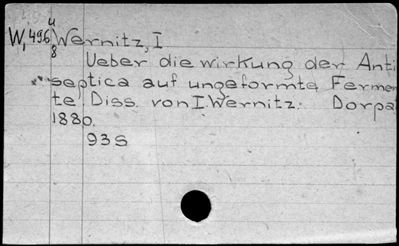 W,496 4/8 Wernitz, I
Ueber die wirkung der Anti
septica auf ungeformte Fermen
te Diss. von I Wernitz. Dorpa
1880.
93 S